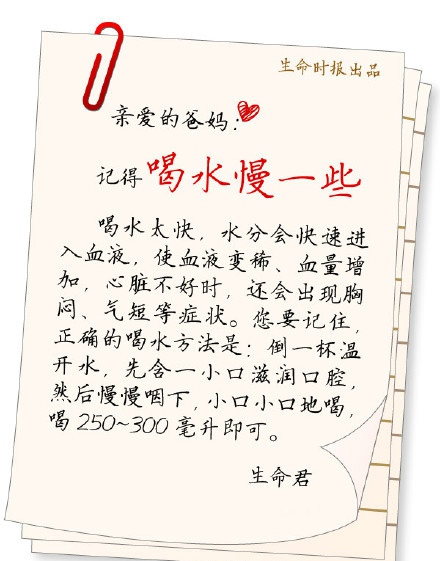 生命时报出品
亲爱的爸妈：
记得喝水慢一些
喝水太快，水分会快速进
入血液，使血液变稀、血量增
加，心脏不好时，还会出现胸
闷、气短等症状。您要记住，
正确的喝水方法是：倒一杯温
开水，先含一小口滋润口腔，
然后慢慢咽下，小口小口地喝，
喝250~300毫升即可。
生命君